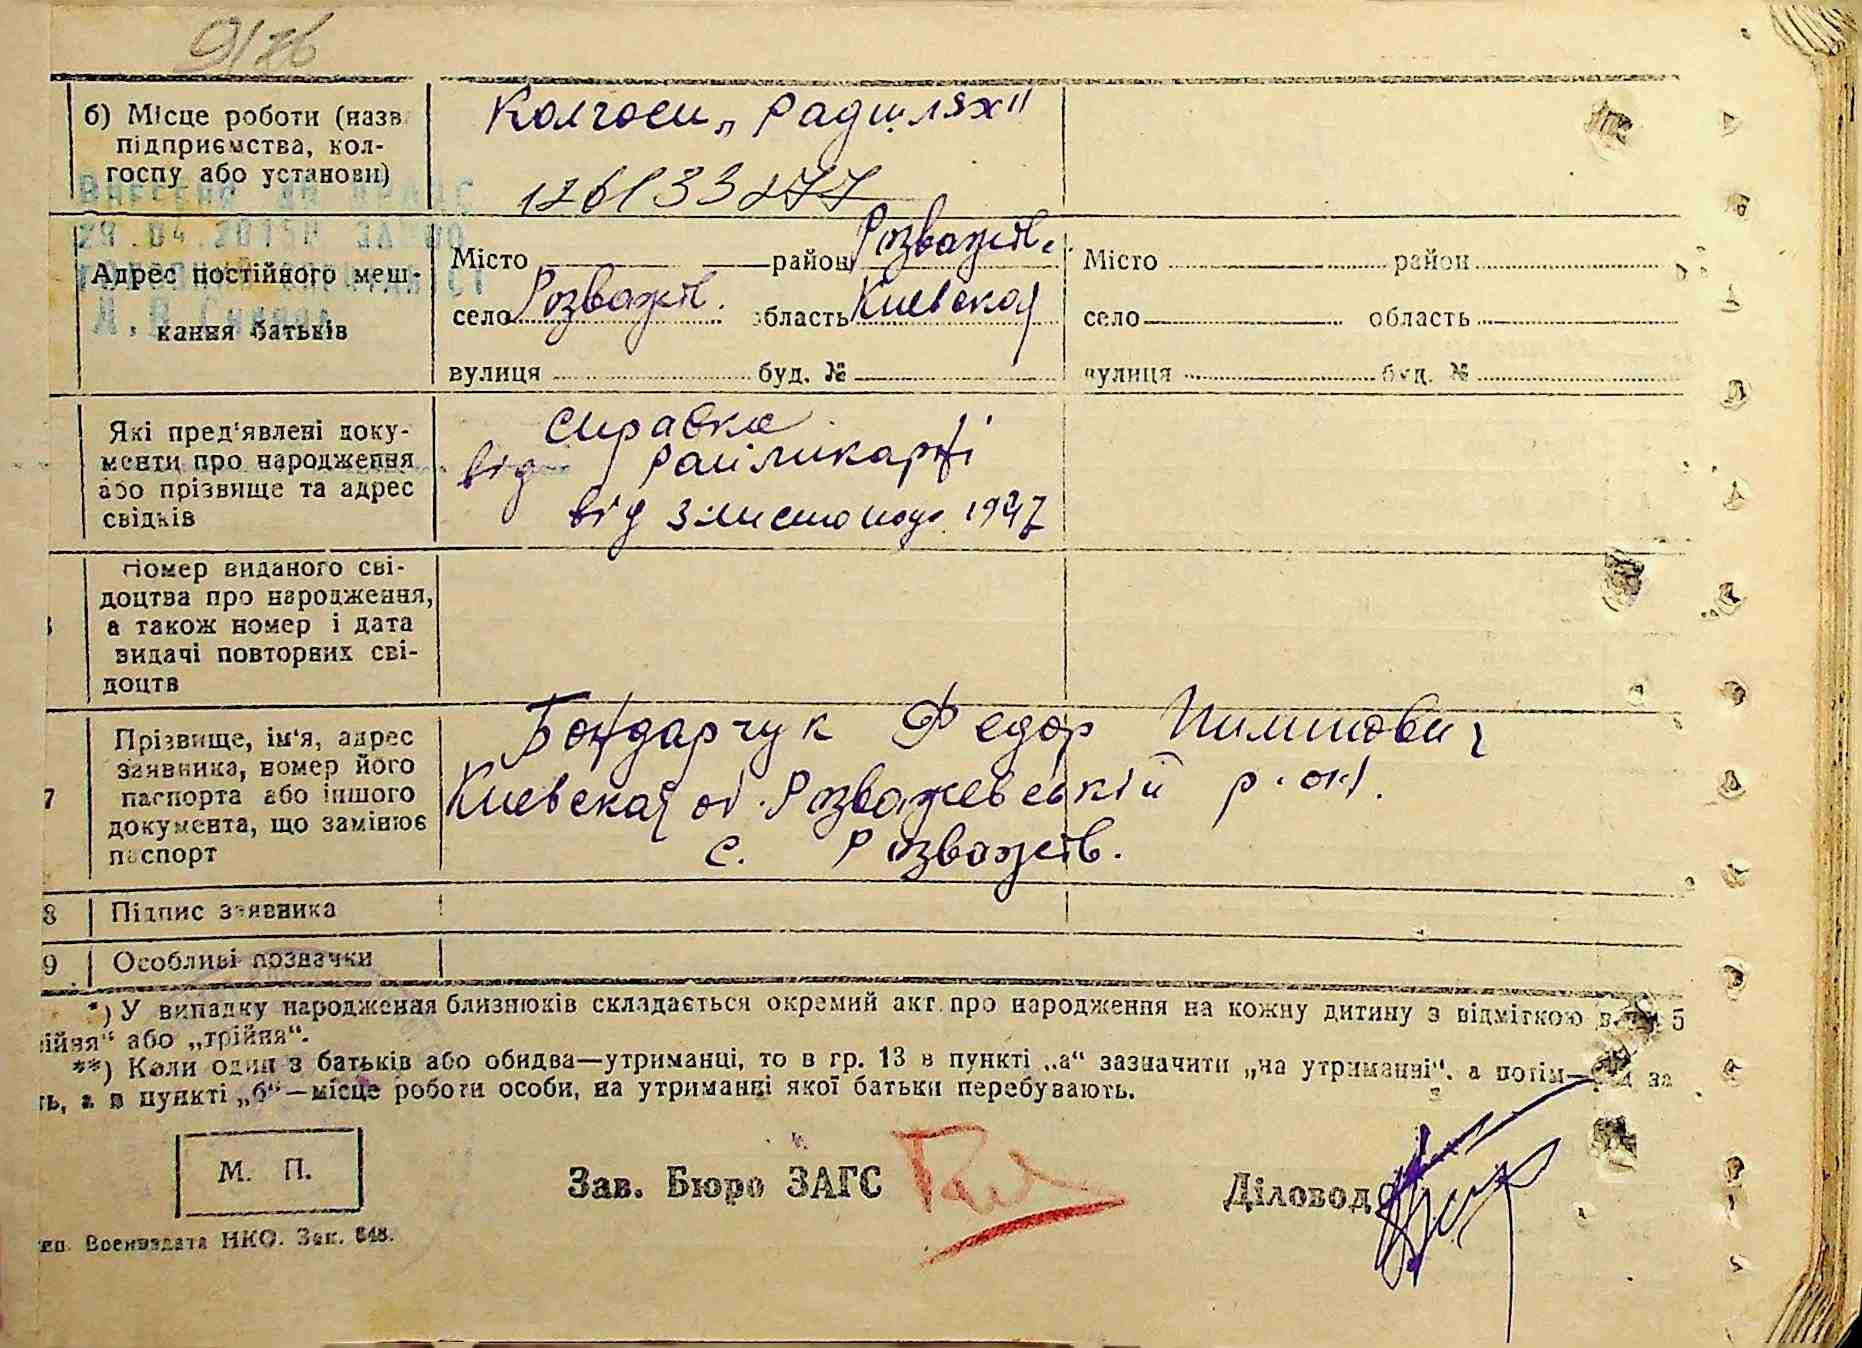 9/76
б) Місце роботи (назв
підприємства, кол-
госпу або установи)
Колгосп „Радшлях"
126133277
Внесено до
29.04.2015р
Адрес постійного меш-
кання батьків
Місто район Розважів.
село Розважів. область Киевская
вулиця буд. №
Місто район
село область
вулиця буд. №
Які пред'явлені доку-
менти про народження
або прізвище та адрес
свідків
справка
від Райлікарні
від 3 листопада 1947
Номер виданого сві-
доцтва про народження,
а також номер і дата
видачі повторних сві-
доцтв
7
Прізвище, ім'я, адрес
заявника, номер його
паспорта або іншого
документа, що замінює
паспорт
Бондарчук Федор Пилипович
Киевская об. Розважевській р-он.
с. Розважів.
8 Підпис заявника
9 Особливі позначки
*) У випадку народження близнюків складається окремий акт про народження на кожну дитину з відміткою в 5
ійня" або „трійня".
**) Коли один з батьків або обидва—утриманці, то в гр. 13 в пункті „а" зазначити „на утриманні", а потім— за
ть, а в пункті „б"—місце роботи особи, на утриманні якої батьки перебувають.
М. П.
Зав. Бюро ЗАГС
Діловод
тип. Воениздата НКО. Зак. 648.